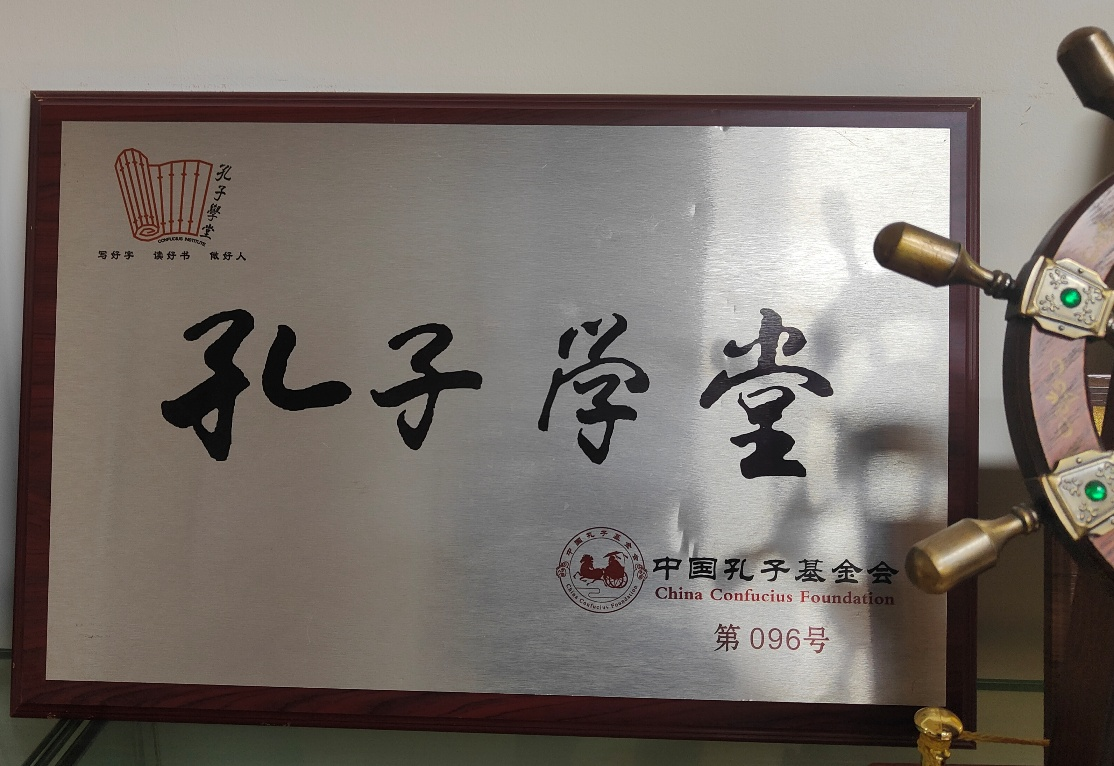 孔子學堂
CONFUCIUS INSTITUTE
写好字 读好书 做好人
孔子学堂
中国孔子基金会
China Confucius Foundation
中国孔子基金会
China Confucius Foundation
第 096号